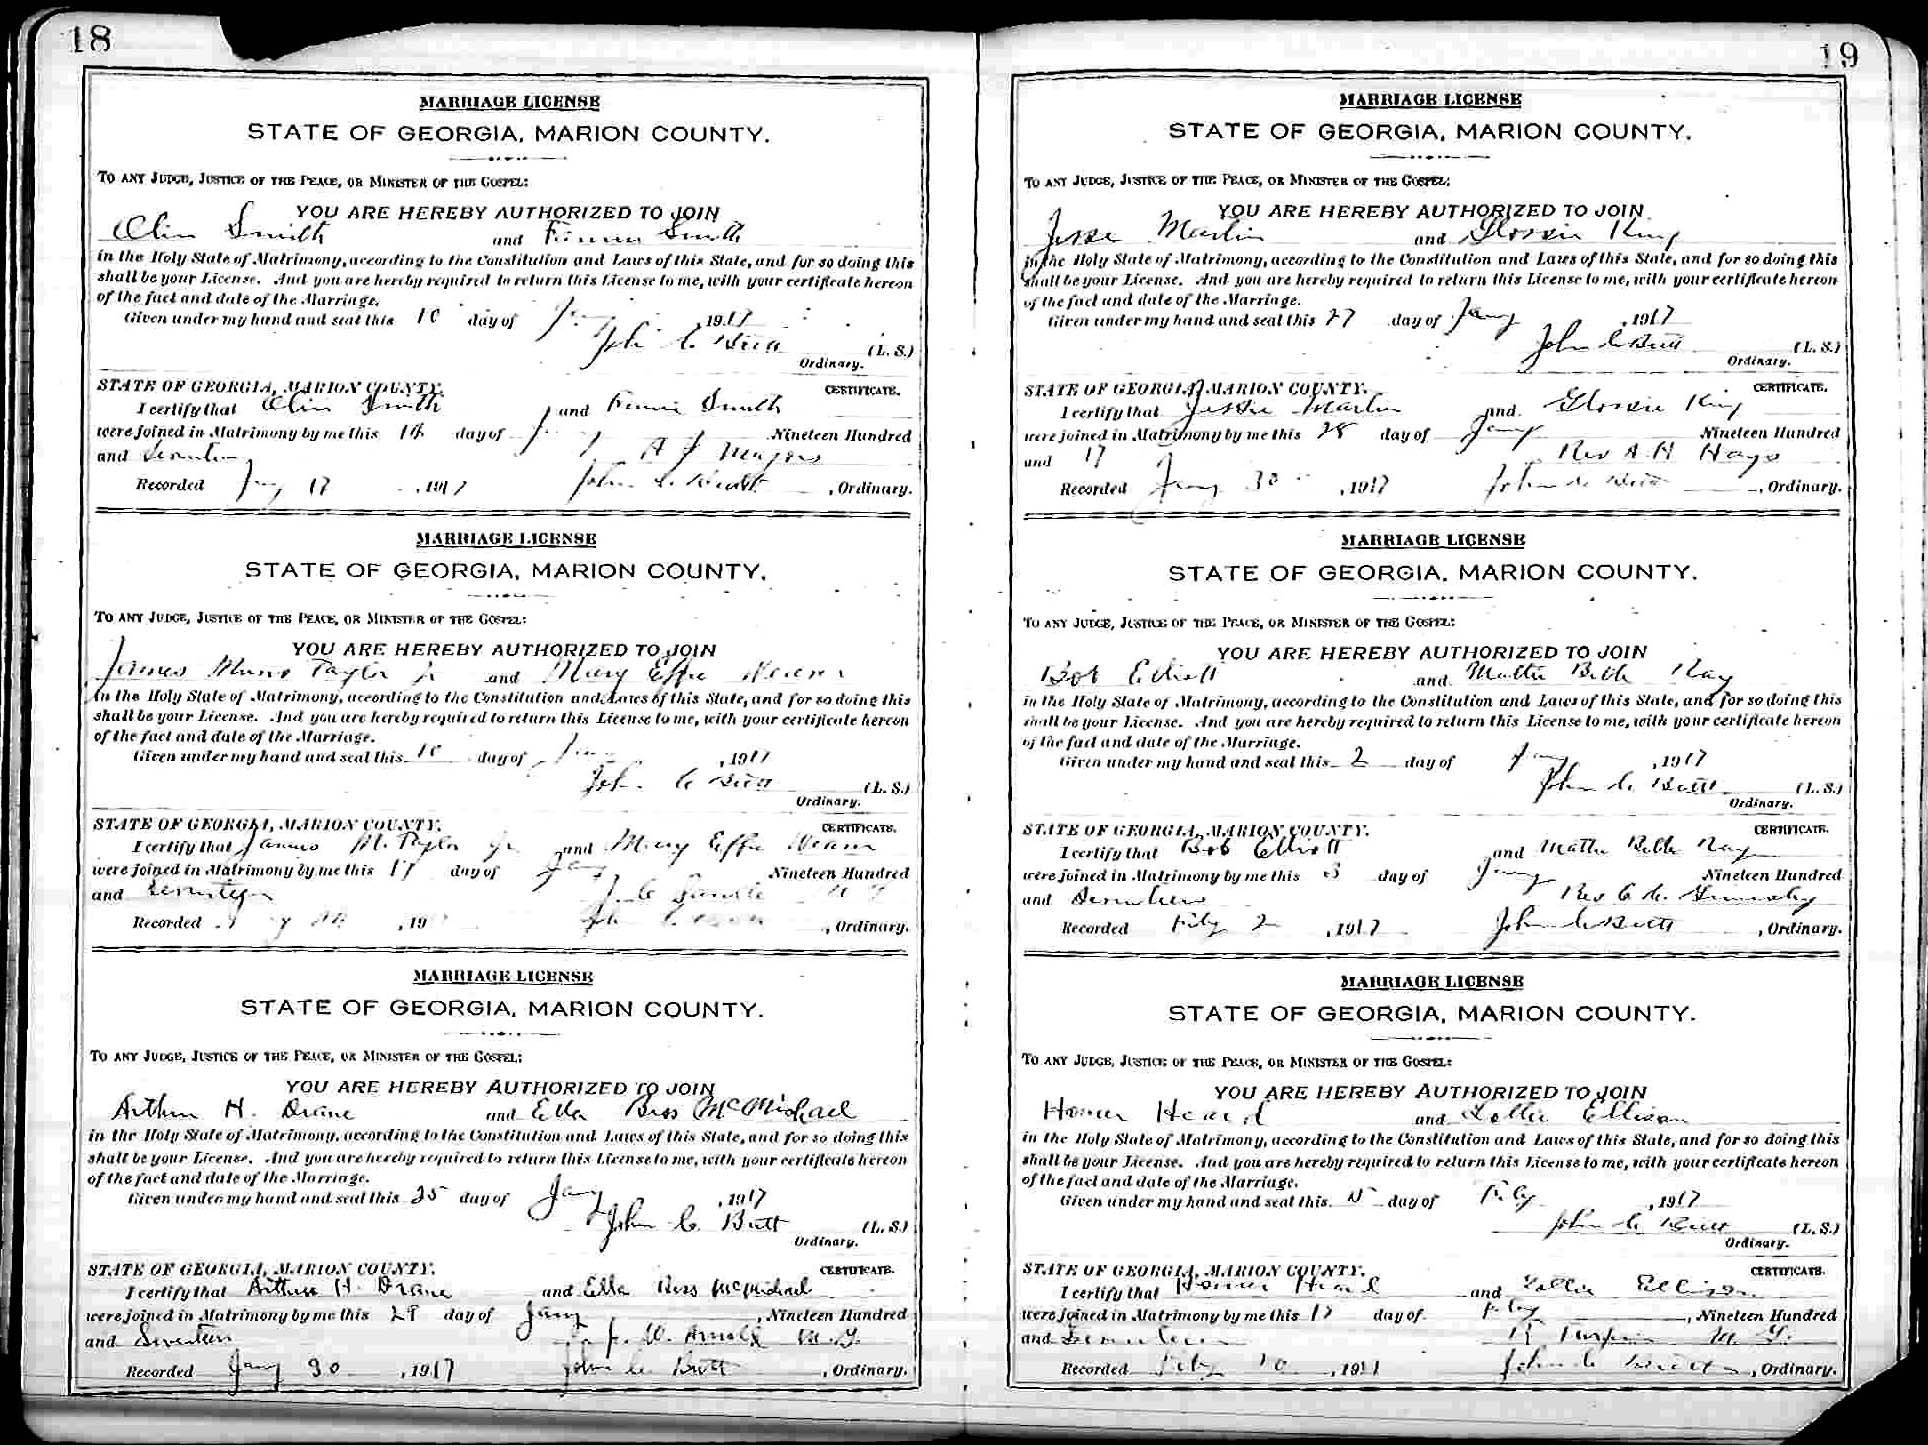 18
MARRIAGE LICENSE
STATE OF GEORGIA, MARION COUNTY.
TO ANY JUDGE, JUSTICE OF THE PEACE, OR MINISTER OF THE GOSPEL:
YOU ARE HEREBY AUTHORIZED TO JOIN
Olin Smith and Smith
in the Holy State of Matrimony, according to the Constitution and Laws of this State, and for so doing this
shall be your License. And you are hereby required to return this License to me, with your certificate hereon
of the fact and date of the Marriage.
Given under my hand and seal this 10 day of 1917
John C. Butt (L. S.)
Ordinary.
STATE OF GEORGIA, MARION COUNTY. CERTIFICATE.
I certify that Olin Smith and Smith
were joined in Matrimony by me this 14 day of Nineteen Hundred
and
Recorded Jany 17, 1917 John C. Butt, Ordinary.
MARRIAGE LICENSE
STATE OF GEORGIA, MARION COUNTY.
TO ANY JUDGE, JUSTICE OF THE PEACE, OR MINISTER OF THE GOSPEL:
YOU ARE HEREBY AUTHORIZED TO JOIN
James Taylor Jr and Mary Effie
in the Holy State of Matrimony, according to the Constitution and Laws of this State, and for so doing this
shall be your License. And you are hereby required to return this License to me, with your certificate hereon
of the fact and date of the Marriage.
Given under my hand and seal this 10 day of , 1917
John C Butt (L. S.)
Ordinary.
STATE OF GEORGIA, MARION COUNTY. CERTIFICATE.
I certify that James M. Taylor Jr. and Mary Effie
were joined in Matrimony by me this 17 day of Jany Nineteen Hundred
and Seventeen
Recorded , 191 John C. Butt, Ordinary.
MARRIAGE LICENSE
STATE OF GEORGIA, MARION COUNTY.
TO ANY JUDGE, JUSTICE OF THE PEACE, OR MINISTER OF THE GOSPEL:
YOU ARE HEREBY AUTHORIZED TO JOIN
Arthur H. Drane and Ella Bess McMichael
in the Holy State of Matrimony, according to the Constitution and Laws of this State, and for so doing this
shall be your License. And you are hereby required to return this License to me, with your certificate hereon
of the fact and date of the Marriage.
Given under my hand and seal this 25 day of Jany, 1917
John C. Butt (L. S.)
Ordinary.
STATE OF GEORGIA, MARION COUNTY. CERTIFICATE.
I certify that Arthur H. Drane and Ella Bess McMichael
were joined in Matrimony by me this day of Jany, Nineteen Hundred
and Seventeen J. W. Arnold M. G.
Recorded Jany 30, 1917 John C. Butt, Ordinary.
19
MARRIAGE LICENSE
STATE OF GEORGIA, MARION COUNTY.
TO ANY JUDGE, JUSTICE OF THE PEACE, OR MINISTER OF THE GOSPEL:
YOU ARE HEREBY AUTHORIZED TO JOIN
Jesse Martin and Glossie King
in the Holy State of Matrimony, according to the Constitution and Laws of this State, and for so doing this
shall be your License. And you are hereby required to return this License to me, with your certificate hereon
of the fact and date of the Marriage.
Given under my hand and seal this 27 day of Jany, 1917
John C Butt (L. S.)
Ordinary.
STATE OF GEORGIA, MARION COUNTY. CERTIFICATE.
I certify that Jessie Martin and Glossie King
were joined in Matrimony by me this 28 day of Jany Nineteen Hundred
and 17 Rev A. H Hays
Recorded Jany 30, 1917 John C Butt, Ordinary.
MARRIAGE LICENSE
STATE OF GEORGIA, MARION COUNTY.
TO ANY JUDGE, JUSTICE OF THE PEACE, OR MINISTER OF THE GOSPEL:
YOU ARE HEREBY AUTHORIZED TO JOIN
Bob Elliott and Mattie Belle Ray
in the Holy State of Matrimony, according to the Constitution and Laws of this State, and for so doing this
shall be your License. And you are hereby required to return this License to me, with your certificate hereon
of the fact and date of the Marriage.
Given under my hand and seal this 2 day of Jany, 1917
John C. Butt (L. S.)
Ordinary.
STATE OF GEORGIA, MARION COUNTY. CERTIFICATE.
I certify that Bob Elliott and Mattie Belle Ray
were joined in Matrimony by me this 3 day of Jany Nineteen Hundred
and Seventeen Rev
Recorded Feby 2, 1917 John C Butt, Ordinary.
MARRIAGE LICENSE
STATE OF GEORGIA, MARION COUNTY.
TO ANY JUDGE, JUSTICE OF THE PEACE, OR MINISTER OF THE GOSPEL:
YOU ARE HEREBY AUTHORIZED TO JOIN
Homer Heard and Lollie Ellison
in the Holy State of Matrimony, according to the Constitution and Laws of this State, and for so doing this
shall be your License. And you are hereby required to return this License to me, with your certificate hereon
of the fact and date of the Marriage.
Given under my hand and seal this day of Feby, 1917
John C Butt (L. S.)
Ordinary.
STATE OF GEORGIA, MARION COUNTY. CERTIFICATE.
I certify that Homer Heard and Lollie Ellison
were joined in Matrimony by me this day of Feby, Nineteen Hundred
and Seventeen M. G.
Recorded Feby, 191 John C Butt, Ordinary.